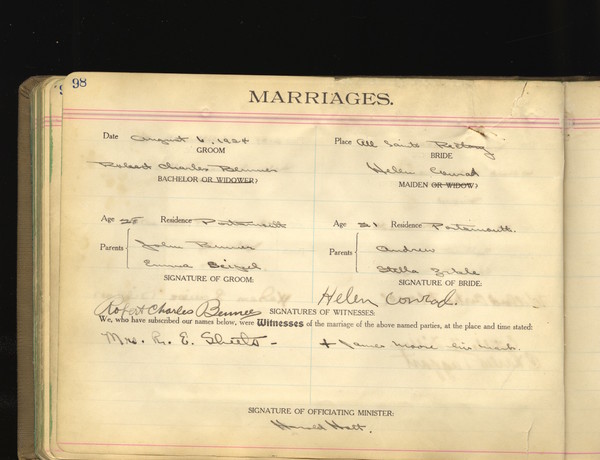 98
MARRIAGES.
Date August 6, 1924 Place All Saints Rectory
GROOM BRIDE
Robert Charles Bennes Helen Conrad
BACHELOR OR WIDOWER) MAIDEN OR WIDOW)
Age Residence Portsmouth Age 21 Residence Portsmouth.
Parents John Parents Andrew
Emma Stella
SIGNATURE OF GROOM: SIGNATURE OF BRIDE:
Robert Charles Helen Conrad.
SIGNATURES OF WITNESSES:
We, who have subscribed our names below, were Witnesses of the marriage of the above named parties, at the place and time stated:
Mrs. R. E. Sheets - + James Moore his mark.
SIGNATURE OF OFFICIATING MINISTER:
Harold Holt.